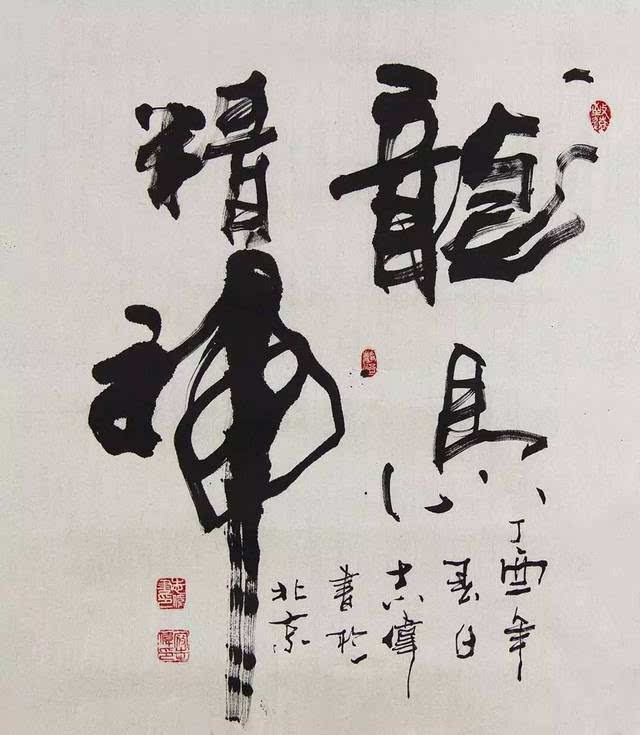 龍馬
精神
丁酉年
春日
志偉
書於
北京